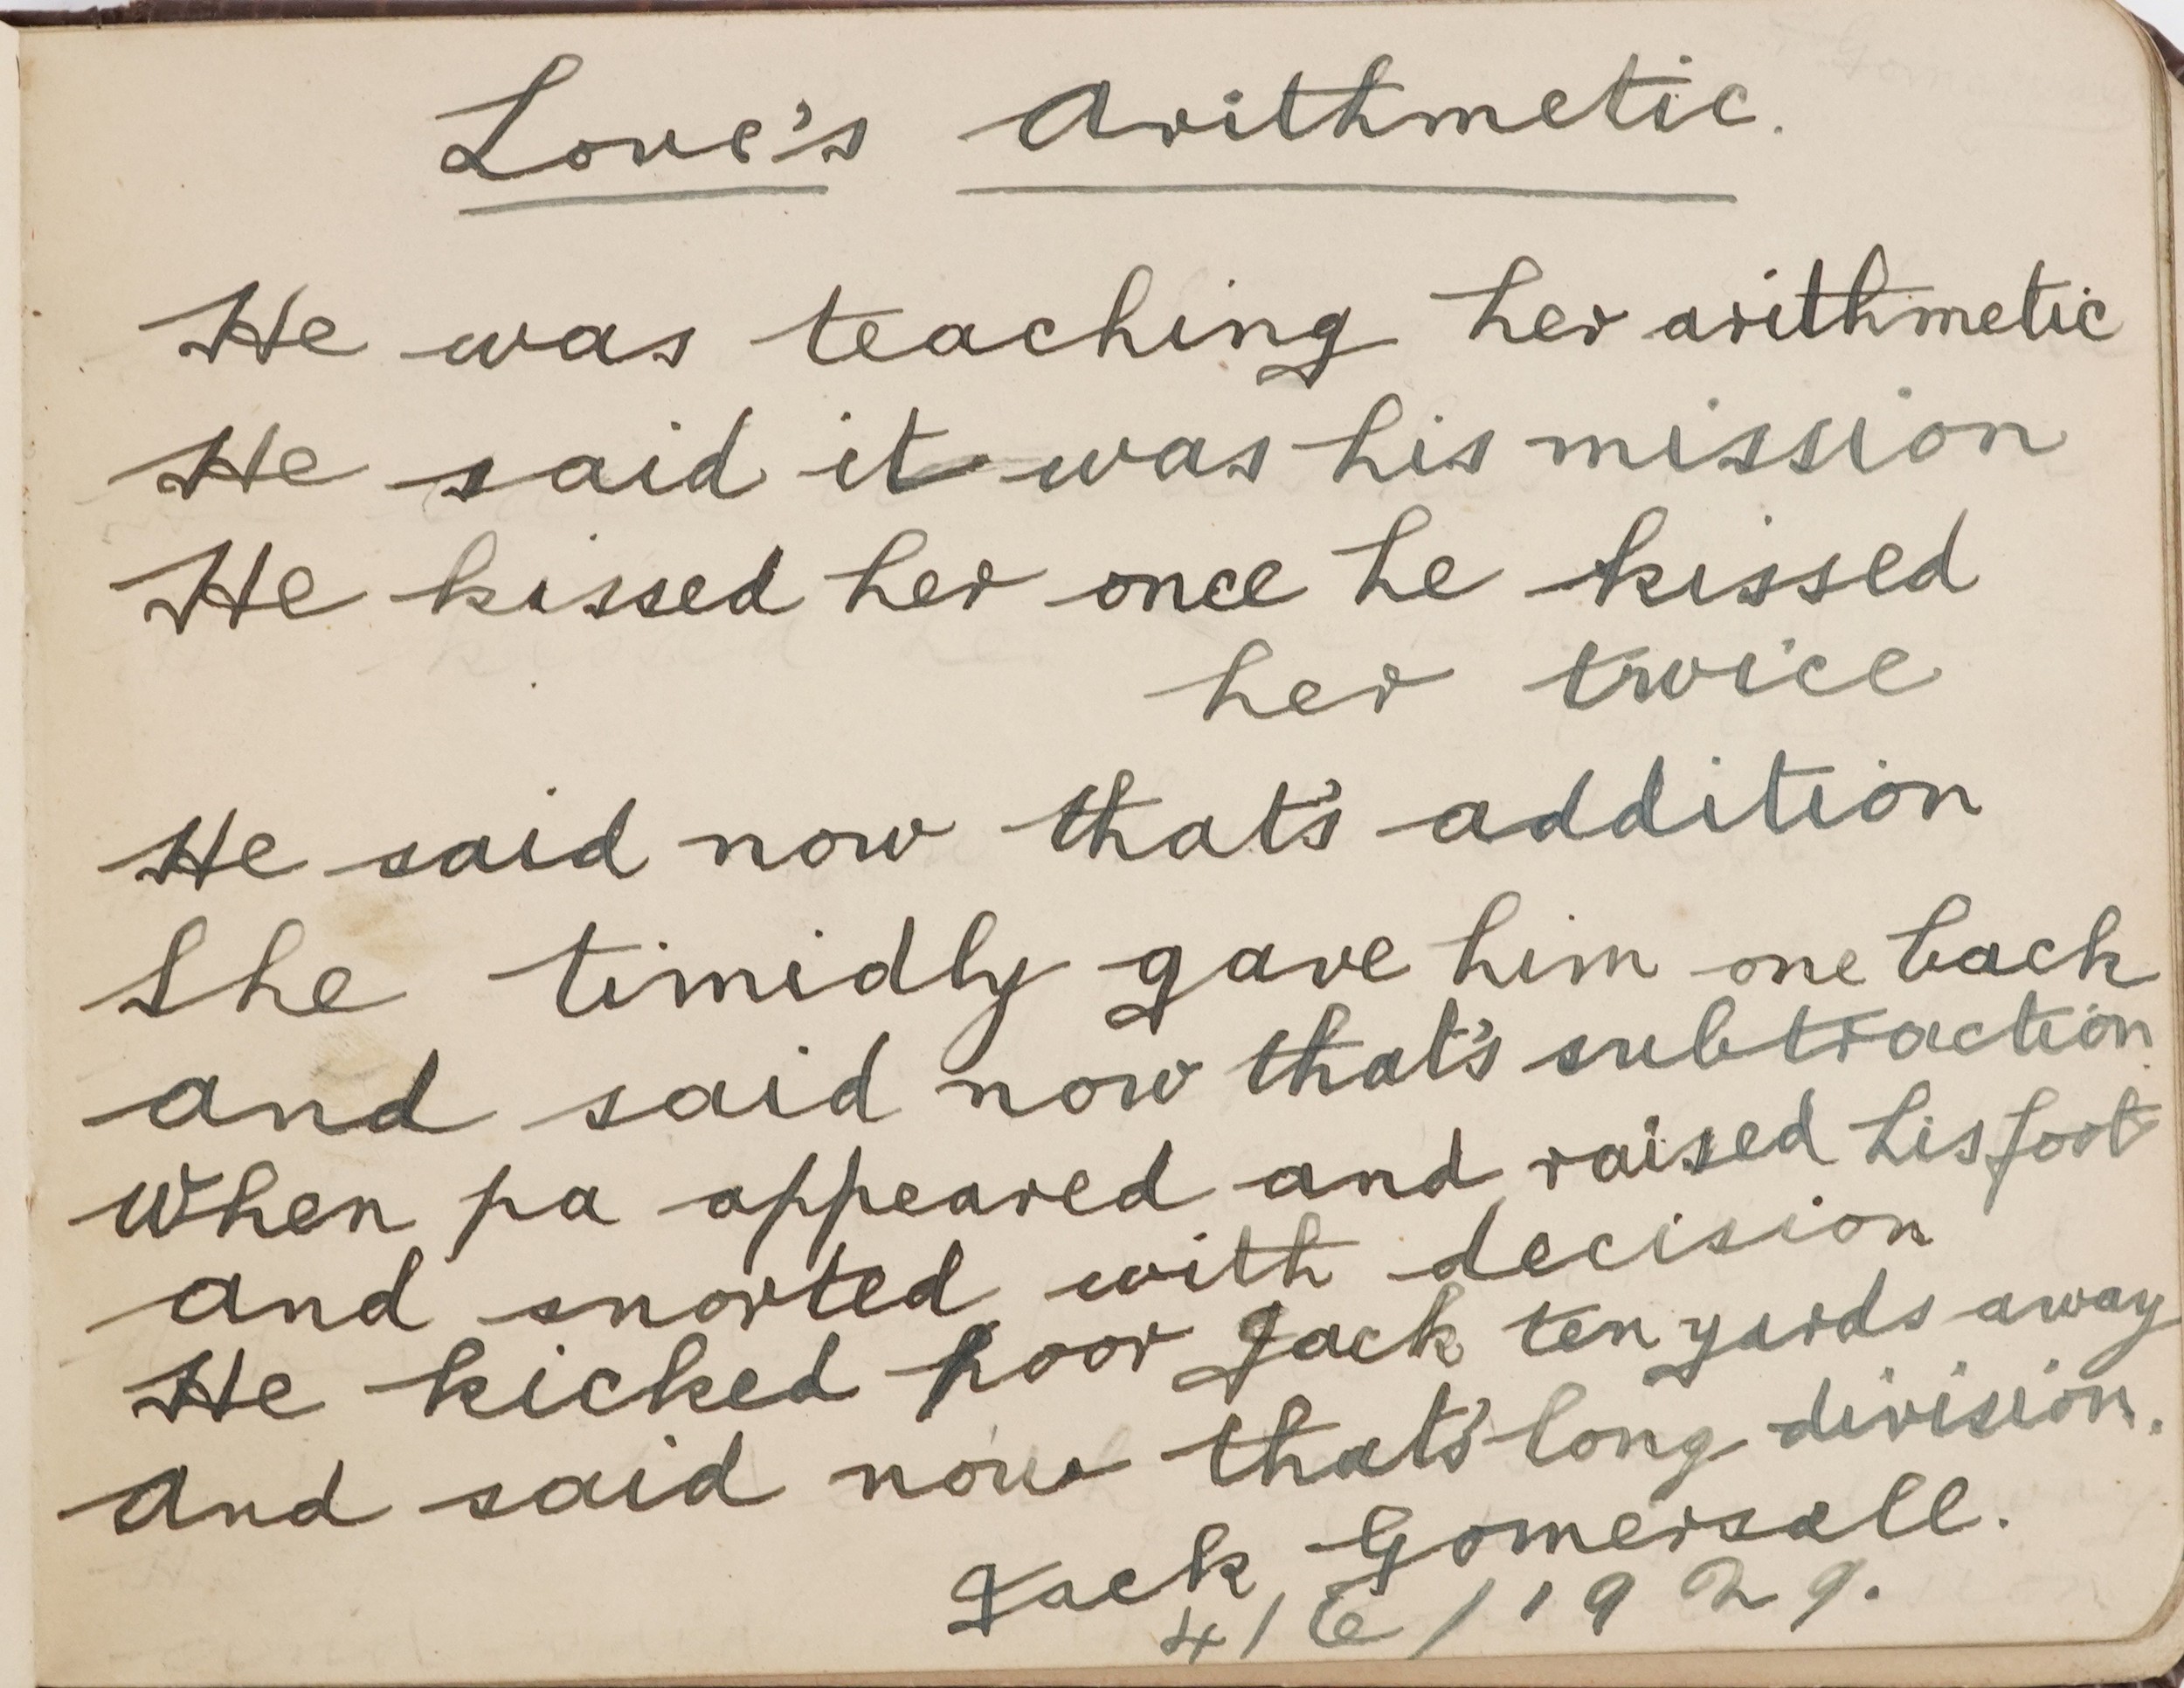 Love's Arithmetic.
He was teaching her arithmetic
He said it was his mission
He kissed her once he kissed
her twice
He said now that's addition
She timidly gave him one back
and said now that's subtraction
When pa appeared and raised his foot
and snorted with decision
He kicked poor Jack ten yards away
and said now that's long division.
Jack Gomersall.
4/6/1929.